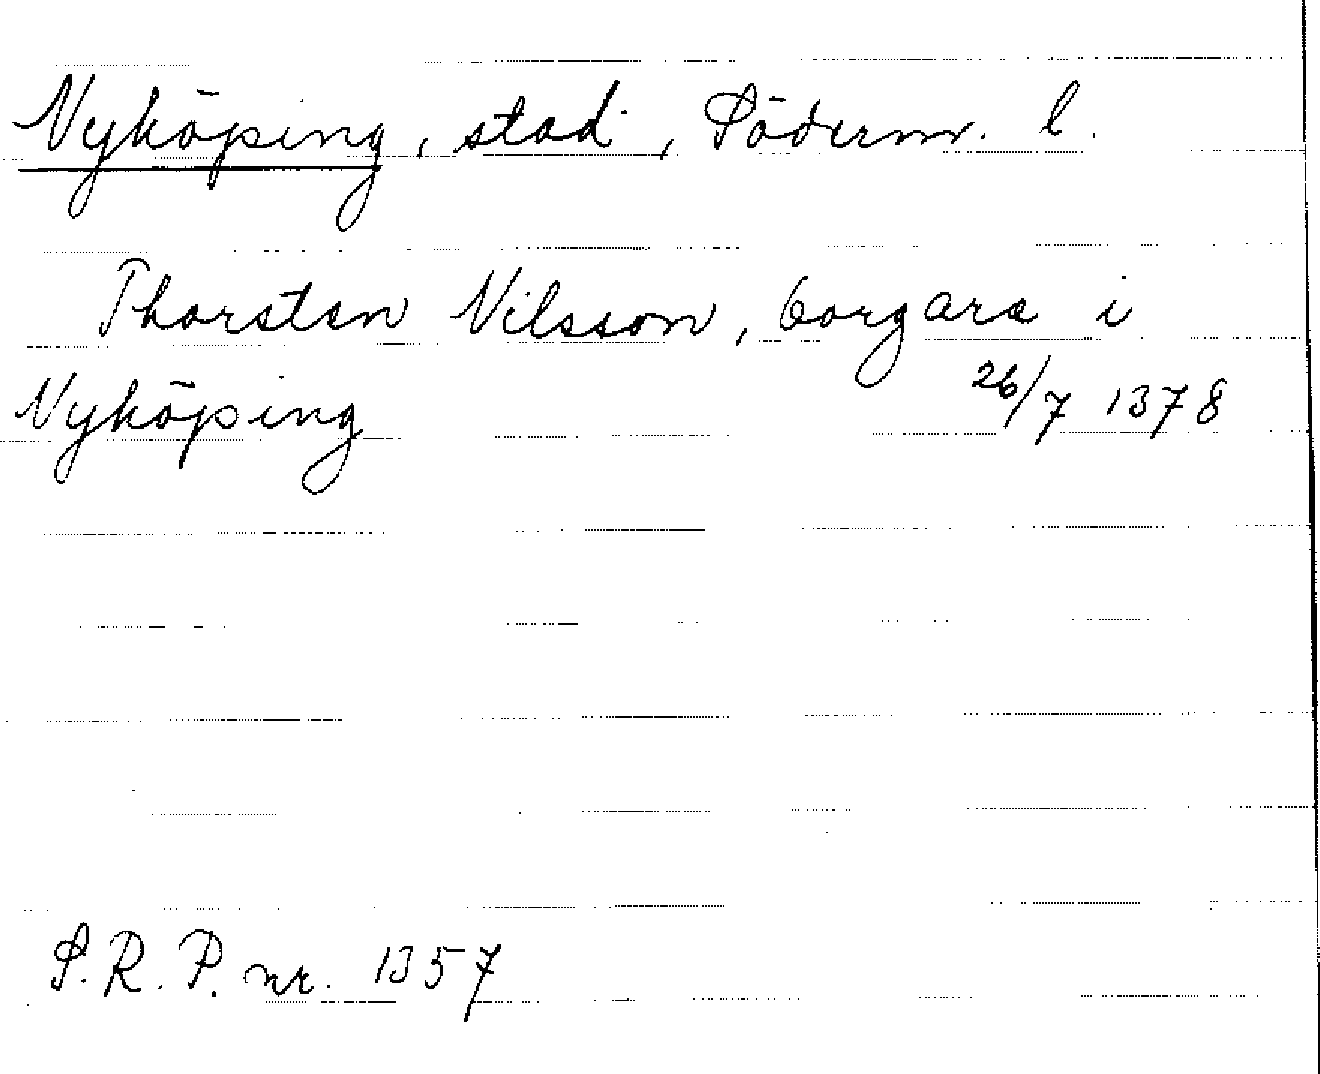 Nyköping, stad, Söderm. l.
Thorsten Nilsson, borgare i
Nyköping 26/7 1378
S.R.P. nr. 1357